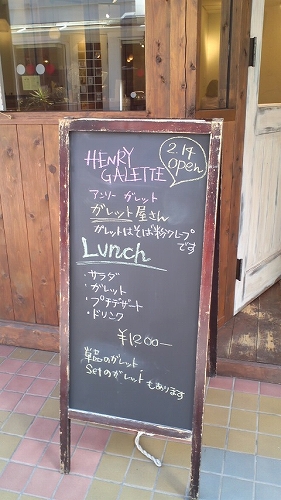 HENRY
GALETTE
2.17
open
アンリー ガレット
ガレット屋さん
ガレットはそば粉クレープ
です
Lunch
・サラダ
・ガレット
・プチデザート
・ドリンク
¥1200-
単品のガレット
Setのガレットもあります